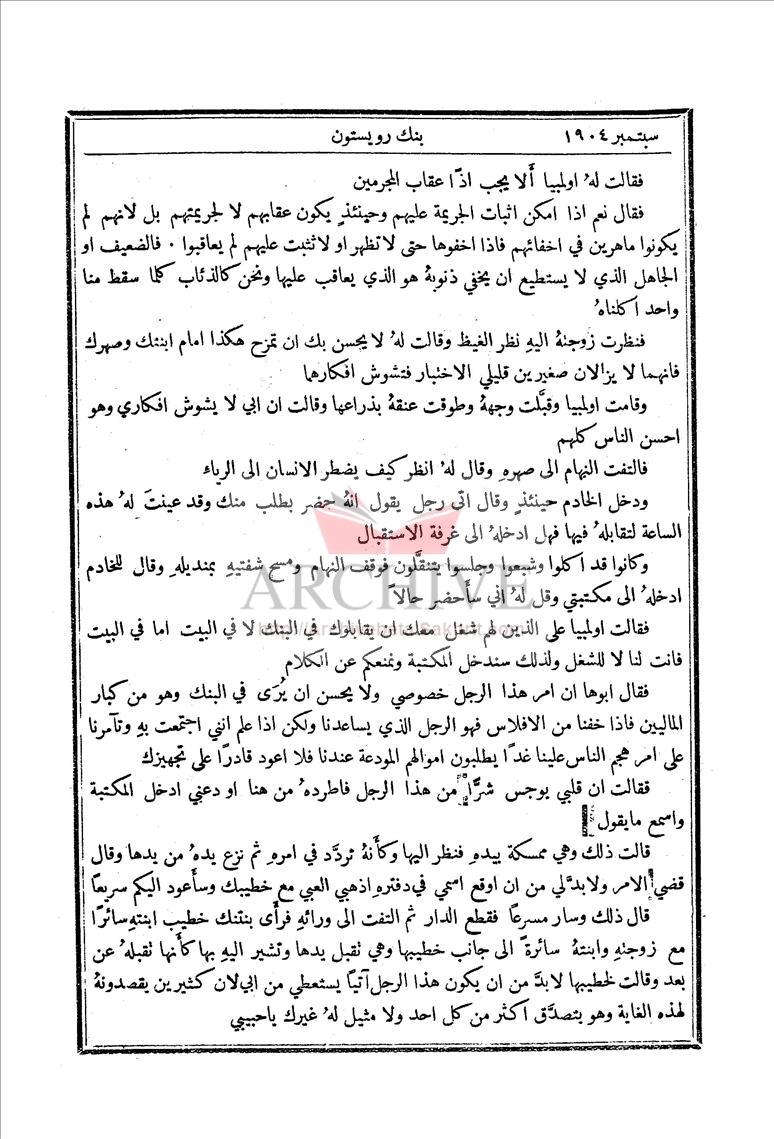 سبتمبر ١٩٠٤
بنك رويستون
فقالت لهُ اولمبيا أَلا يجب اذًا عقاب المجرمين
فقال نعم اذا امكن اثبات الجريمة عليهم وحينئذٍ يكون عقابهم لا لجريمتهم بل لانهم لم
يكونوا ماهرين في اخفائهم فاذا اخفوها حتى لا تظهر او لا تثبت عليهم لم يعاقبوا . فالضعيف او
الجاهل الذي لا يستطيع ان يخفي ذنوبهُ هو الذي يعاقب عليها ونحن كالذئاب كلما سقط منا
واحد اكلناهُ
فنظرت زوجتهُ اليهِ نظر الغيظ وقالت لهُ لا يحسن بك ان تمزح هكذا امام ابنتك وصهرك
فانهما لا يزالان صغيرين قليلي الاختبار فتشوش افكارهما
وقامت اولمبيا وقبَّلت وجههُ وطوقت عنقهُ بذراعها وقالت ان ابي لا يشوش افكاري وهو
احسن الناس كلهم
فالتفت النهام الى صهرهِ وقال لهُ انظر كيف يضطر الانسان الى الرياء
ودخل الخادم حينئذٍ وقال اتى رجل يقول انهُ حضر بطلب منك وقد عينتَ لهُ هذه
الساعة لتقابلهُ فيها فهل ادخلهُ الى غرفة الاستقبال
وكانوا قد اكلوا وشبعوا وجلسوا يتنقَّلون فوقف النهام ومسح شفتيهِ بمنديلهِ وقال للخادم
ادخلهُ الى مكتبتي وقل لهُ اني سأَحضر حالاً
ARCHIVE
فقالت اولمبيا على الذين لهم شغل معك ان يقابلوك في البنك لا في البيت اما في البيت
فانت لنا لا للشغل ولذلك سندخل المكتبة ونمنعكم عن الكلام
فقال ابوها ان امر هذا الرجل خصوصي ولا يحسن ان يُرَى في البنك وهو من كبار
الماليين فاذا خفنا من الافلاس فهو الرجل الذي يساعدنا ولكن اذا علم انني اجتمعت بهِ وتآمرنا
على امر هجم الناس علينا غدًا يطلبون اموالهم المودعة عندنا فلا اعود قادرًا على تجهيزك
فقالت ان قلبي يوجس شرًّا من هذا الرجل فاطردهُ من هنا او دعني ادخل المكتبة
واسمع ما يقول
قالت ذلك وهي ممسكة بيدهِ فنظر اليها وكأَنهُ تردَّد في امرهِ ثم نزع يدهُ من يدها وقال
قضي الامر ولا بدَّ لي من ان اوقع اسمي في دفترهِ اذهبي العبي مع خطيبك وسأعود اليكم سريعًا
قال ذلك وسار مسرعًا فقطع الدار ثم التفت الى ورائهِ فرأَى بنتنك خطيب ابنتهِ سائرًا
مع زوجتهِ وابنتهُ سائرةً الى جانب خطيبها وهي تقبل يدها وتشير اليهِ بها كأَنها تقبلهُ عن
بعد وقالت لخطيبها لابدَّ من ان يكون هذا الرجل آتيًا يستعطي من ابي لان كثيرين يقصدونهُ
لهذه الغاية وهو يتصدَّق اكثر من كل احد ولا مثيل لهُ غيرك يا حبيبي